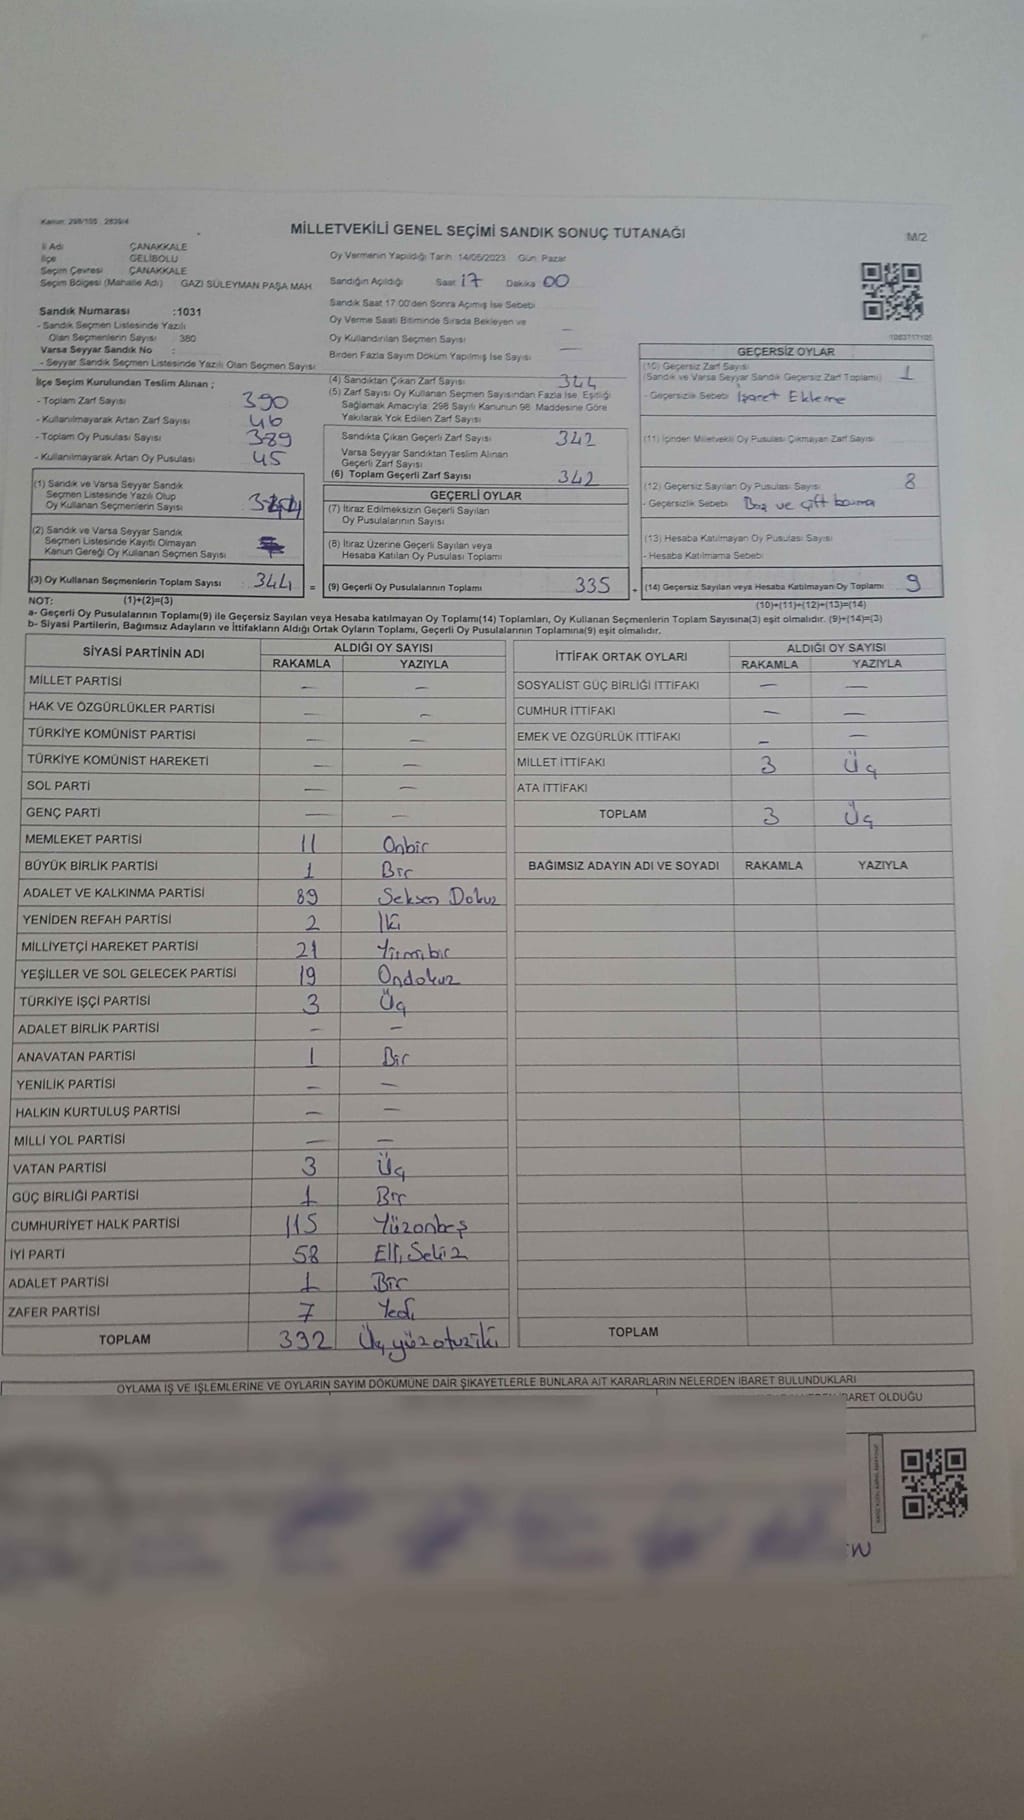 Kanun: 298/105 : 2839/4
MİLLETVEKİLİ GENEL SEÇİMİ SANDIK SONUÇ TUTANAĞI
M/2
İl Adı ÇANAKKALE
İlçe GELİBOLU
Seçim Çevresi ÇANAKKALE
Seçim Bölgesi (Mahalle Adı) GAZİ SÜLEYMAN PAŞA MAH
Oy Vermenin Yapıldığı Tarih: 14/05/2023 Gün: Pazar
Sandığın Açıldığı Saat 17 Dakika 00
Sandık Saat 17:00'den Sonra Açımış İse Sebebi
Oy Verme Saati Bitiminde Sırada Bekleyen ve
Oy Kullandırılan Seçmen Sayısı —
Birden Fazla Sayım Döküm Yapılmış İse Sayısı —
Sandık Numarası :1031
- Sandık Seçmen Listesinde Yazılı
Olan Seçmenlerin Sayısı : 380
Varsa Seyyar Sandık No :
- Seyyar Sandık Seçmen Listesinde Yazılı Olan Seçmen Sayısı
1083717105
İlçe Seçim Kurulundan Teslim Alınan ;
- Toplam Zarf Sayısı 390
- Kullanılmayarak Artan Zarf Sayısı 46
- Toplam Oy Pusulası Sayısı 389
- Kullanılmayarak Artan Oy Pusulası 45
(1) Sandık ve Varsa Seyyar Sandık
Seçmen Listesinde Yazılı Olup
Oy Kullanan Seçmenlerin Sayısı
(2) Sandık ve Varsa Seyyar Sandık
Seçmen Listesinde Kayıtlı Olmayan
Kanun Gereği Oy Kullanan Seçmen Sayısı
(3) Oy Kullanan Seçmenlerin Toplam Sayısı 344 =
(1)+(2)=(3)
(4) Sandıktan Çıkan Zarf Sayısı 344
(5) Zarf Sayısı Oy Kullanan Seçmen Sayısından Fazla İse, Eşitliği
Sağlamak Amacıyla; 298 Sayılı Kanunun 98. Maddesine Göre
Yakılarak Yok Edilen Zarf Sayısı
Sandıkta Çıkan Geçerli Zarf Sayısı 342
Varsa Seyyar Sandıktan Teslim Alınan
Geçerli Zarf Sayısı
(6) Toplam Geçerli Zarf Sayısı 342
GEÇERLİ OYLAR
(7) İtiraz Edilmeksizin Geçerli Sayılan
Oy Pusulalarının Sayısı
(8) İtiraz Üzerine Geçerli Sayılan veya
Hesaba Katılan Oy Pusulası Toplamı
(9) Geçerli Oy Pusulalarının Toplamı 335 +
GEÇERSİZ OYLAR
(10) Geçersiz Zarf Sayısı
(Sandık ve Varsa Seyyar Sandık Geçersiz Zarf Toplamı) 1
- Geçersizlik Sebebi İşaret Ekleme
(11) İçinden Milletvekili Oy Pusulası Çıkmayan Zarf Sayısı
(12) Geçersiz Sayılan Oy Pusulası Sayısı 8
- Geçersizlik Sebebi Boş ve çift basma
(13) Hesaba Katılmayan Oy Pusulası Sayısı
- Hesaba Katılmama Sebebi
(14) Geçersiz Sayılan veya Hesaba Katılmayan Oy Toplamı 9
(10)+(11)+(12)+(13)=(14)
NOT:
a- Geçerli Oy Pusulalarının Toplamı(9) ile Geçersiz Sayılan veya Hesaba katılmayan Oy Toplamı(14) Toplamları, Oy Kullanan Seçmenlerin Toplam Sayısına(3) eşit olmalıdır. (9)+(14)=(3)
b- Siyasi Partilerin, Bağımsız Adayların ve İttifakların Aldığı Ortak Oyların Toplamı, Geçerli Oy Pusulalarının Toplamına(9) eşit olmalıdır.
SİYASİ PARTİNİN ADI ALDIĞI OY SAYISI
RAKAMLA YAZIYLA
MİLLET PARTİSİ — —
HAK VE ÖZGÜRLÜKLER PARTİSİ — —
TÜRKİYE KOMÜNİST PARTİSİ — —
TÜRKİYE KOMÜNİST HAREKETİ — —
SOL PARTİ — —
GENÇ PARTİ — —
MEMLEKET PARTİSİ 11 Onbir
BÜYÜK BİRLİK PARTİSİ 1 Bir
ADALET VE KALKINMA PARTİSİ 89 Seksen Dokuz
YENİDEN REFAH PARTİSİ 2 İki
MİLLİYETÇİ HAREKET PARTİSİ 21 Yirmibir
YEŞİLLER VE SOL GELECEK PARTİSİ 19 Ondokuz
TÜRKİYE İŞÇİ PARTİSİ 3 Üç
ADALET BİRLİK PARTİSİ — —
ANAVATAN PARTİSİ 1 Bir
YENİLİK PARTİSİ — —
HALKIN KURTULUŞ PARTİSİ — —
MİLLİ YOL PARTİSİ — —
VATAN PARTİSİ 3 Üç
GÜÇ BİRLİĞİ PARTİSİ 1 Bir
CUMHURİYET HALK PARTİSİ 115 Yüzonbeş
İYİ PARTİ 58 Elli Sekiz
ADALET PARTİSİ 1 Bir
ZAFER PARTİSİ 7 Yedi
TOPLAM 332 Üç yüz otuz iki
İTTİFAK ORTAK OYLARI ALDIĞI OY SAYISI
RAKAMLA YAZIYLA
SOSYALİST GÜÇ BİRLİĞİ İTTİFAKI — —
CUMHUR İTTİFAKI — —
EMEK VE ÖZGÜRLÜK İTTİFAKI — —
MİLLET İTTİFAKI 3 Üç
ATA İTTİFAKI
TOPLAM 3 Üç
BAĞIMSIZ ADAYIN ADI VE SOYADI RAKAMLA YAZIYLA
TOPLAM
OYLAMA İŞ VE İŞLEMLERİNE VE OYLARIN SAYIM DÖKÜMÜNE DAİR ŞİKAYETLERLE BUNLARA AİT KARARLARIN NELERDEN İBARET BULUNDUKLARI
BARET OLDUĞU